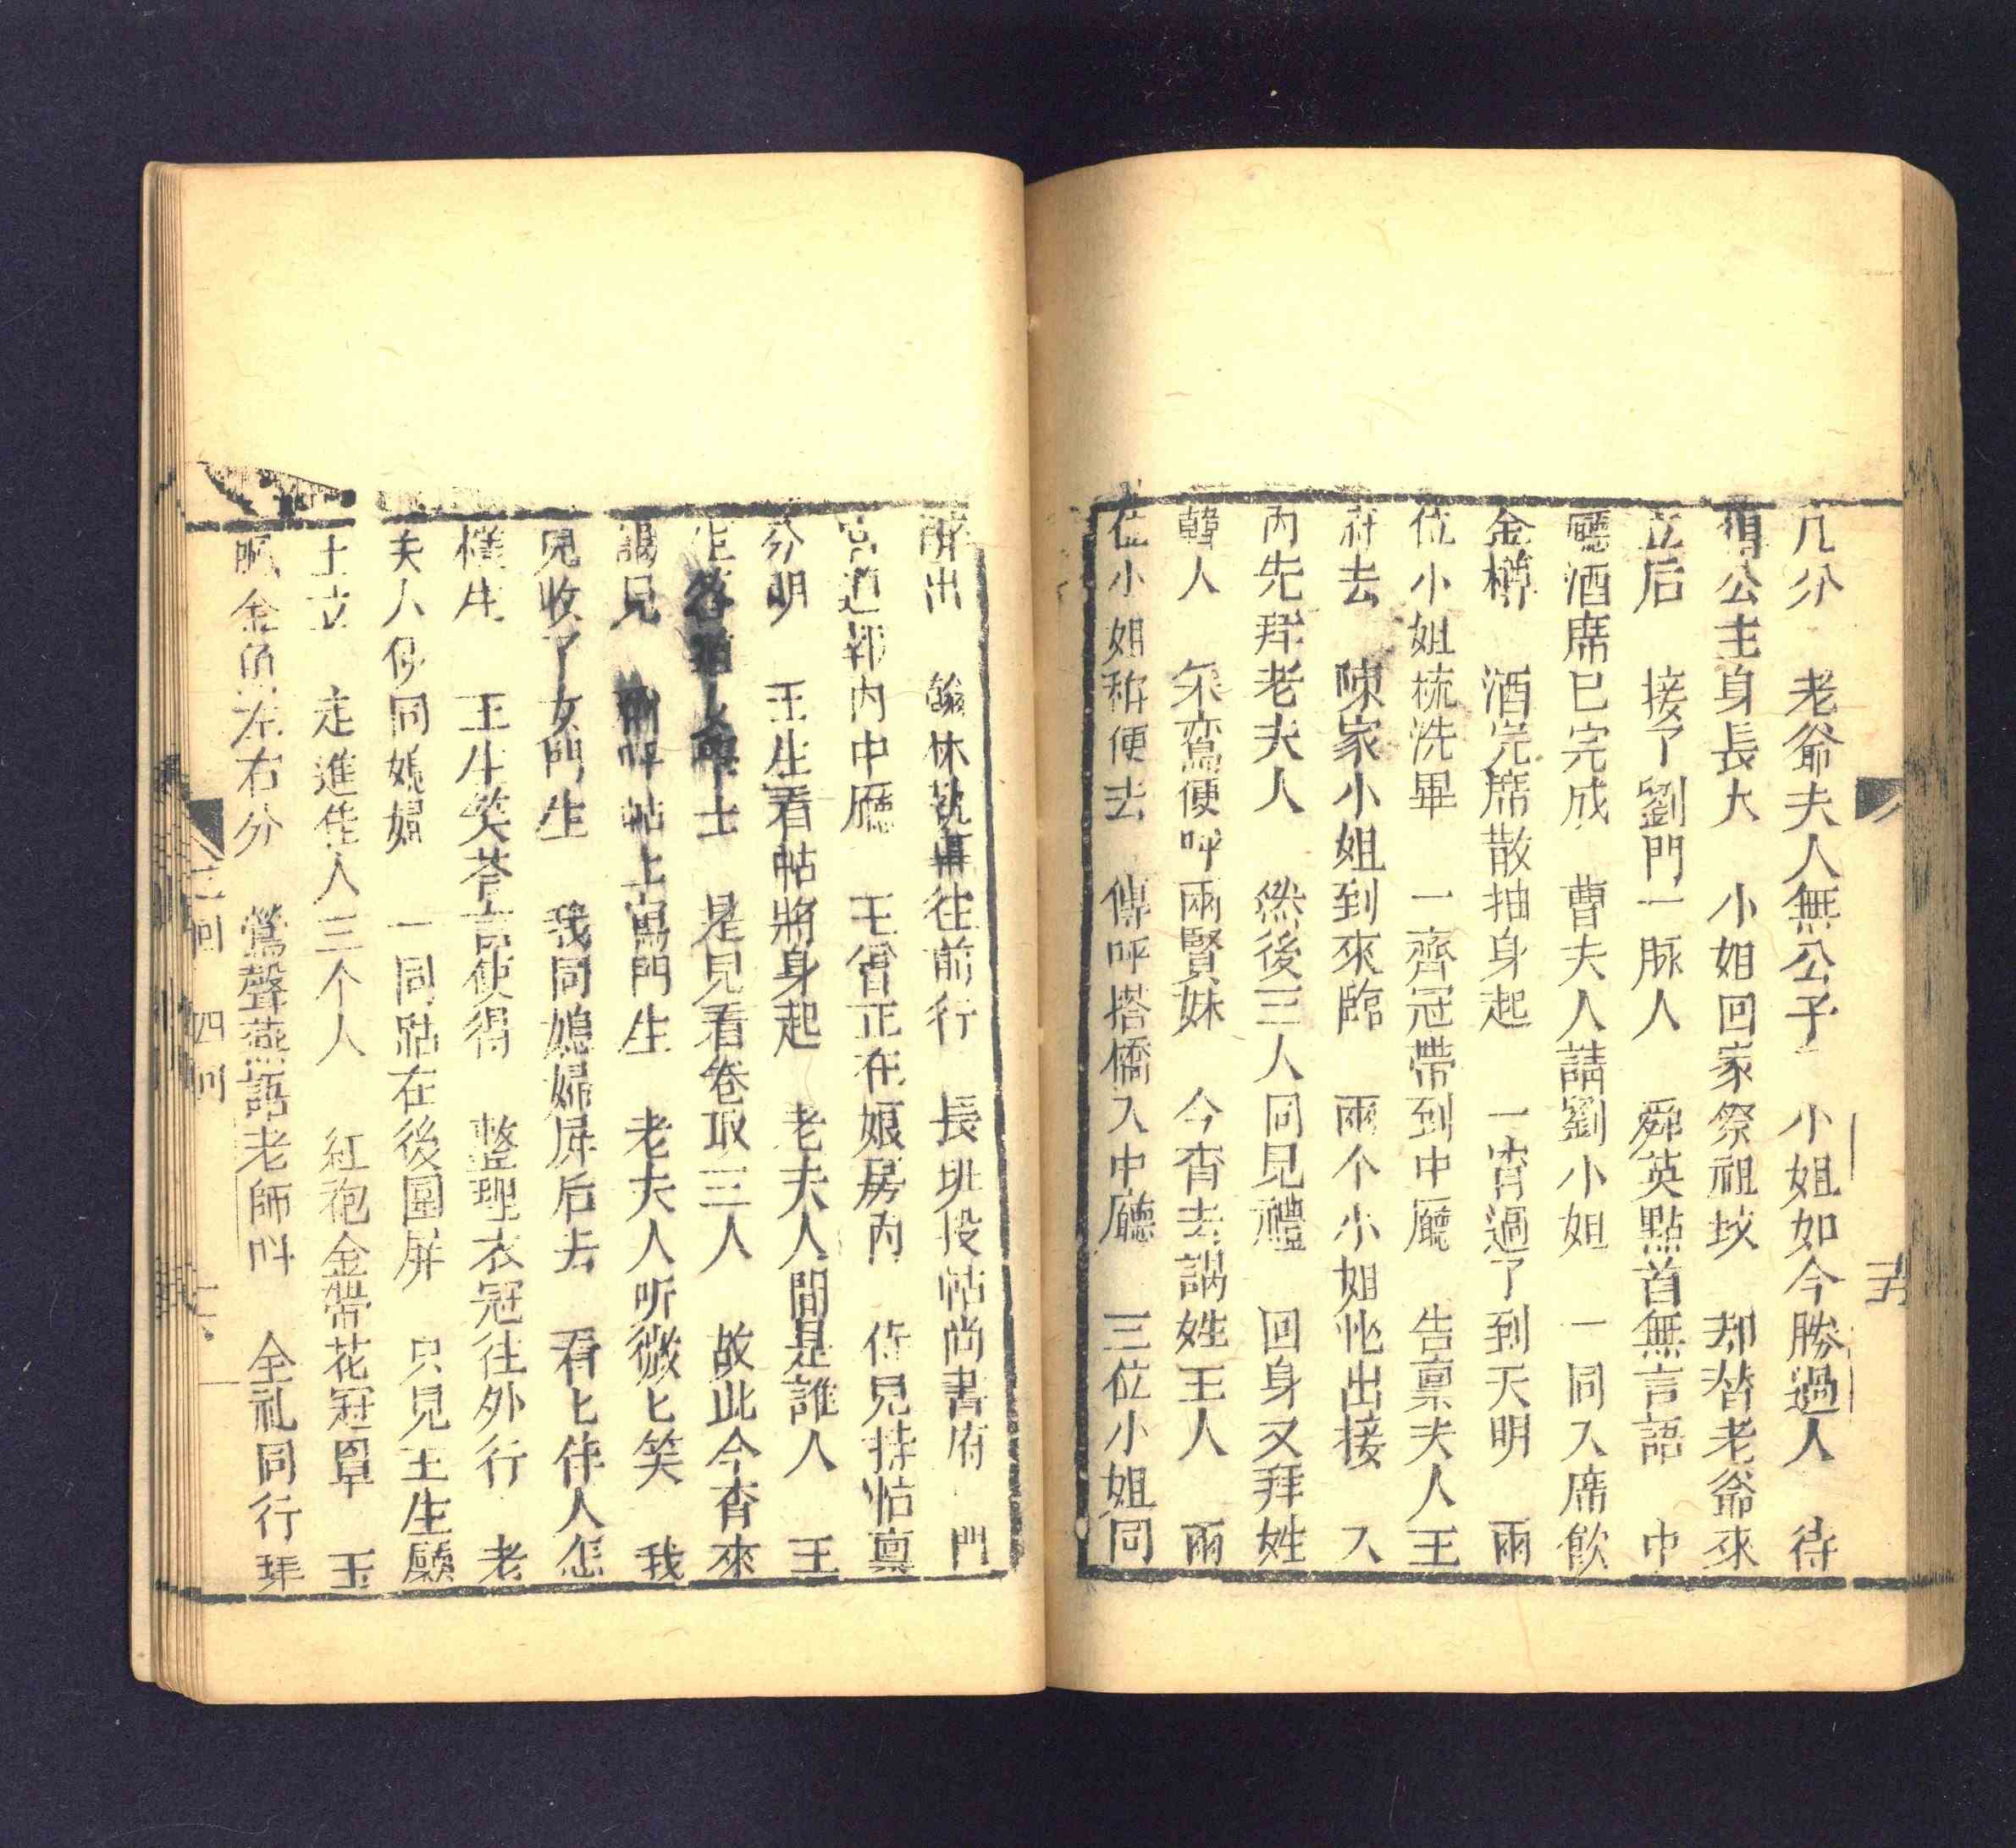 几分　老爺夫人無公子　小姐如今勝過人　待
公主身長大　小姐回家祭祖坟　却替老爺來
立后　接了劉門一脉人　舜英點首無言語　中
廳酒席已完成　曹夫人請劉小姐　一同入席飲
金樽　酒完席散抽身起　一宵過了到天明　兩
位小姐梳洗畢　一齊冠帶到中廳　告稟夫人王
府去　陳家小姐到來臨　兩个小姐忙出接　入
內先拜老夫人　然後三人同見禮　回身又拜姓
韓人　采鸞便呼兩賢妹　今宵去謁姓王人　兩
位小姐称便去　傳呼搭僑入中廳　三位小姐同
五
出　往前行　長班投帖尚書府　門
官通報內中廳　王爺正在娘房內　侍兒持帖稟
分明　王生看帖將身起　老夫人間是誰人　王
生答　士　是兒看卷取三人　故此今宵來
謁見　帖上寫門生　老夫人听微匕笑　我
兒收了女門生　我同媳婦屏后去　看匕佳人怎
樣生　王生笑荅言使得　整理衣冠往外行　老
夫人仝同媳婦　一同站在後圍屏　只見王生廳
上立　走進佳人三个人　紅袍金帶花冠罩　玉
金魚左右分　鶯聲燕語老師呌　全礼同行拜
回　四